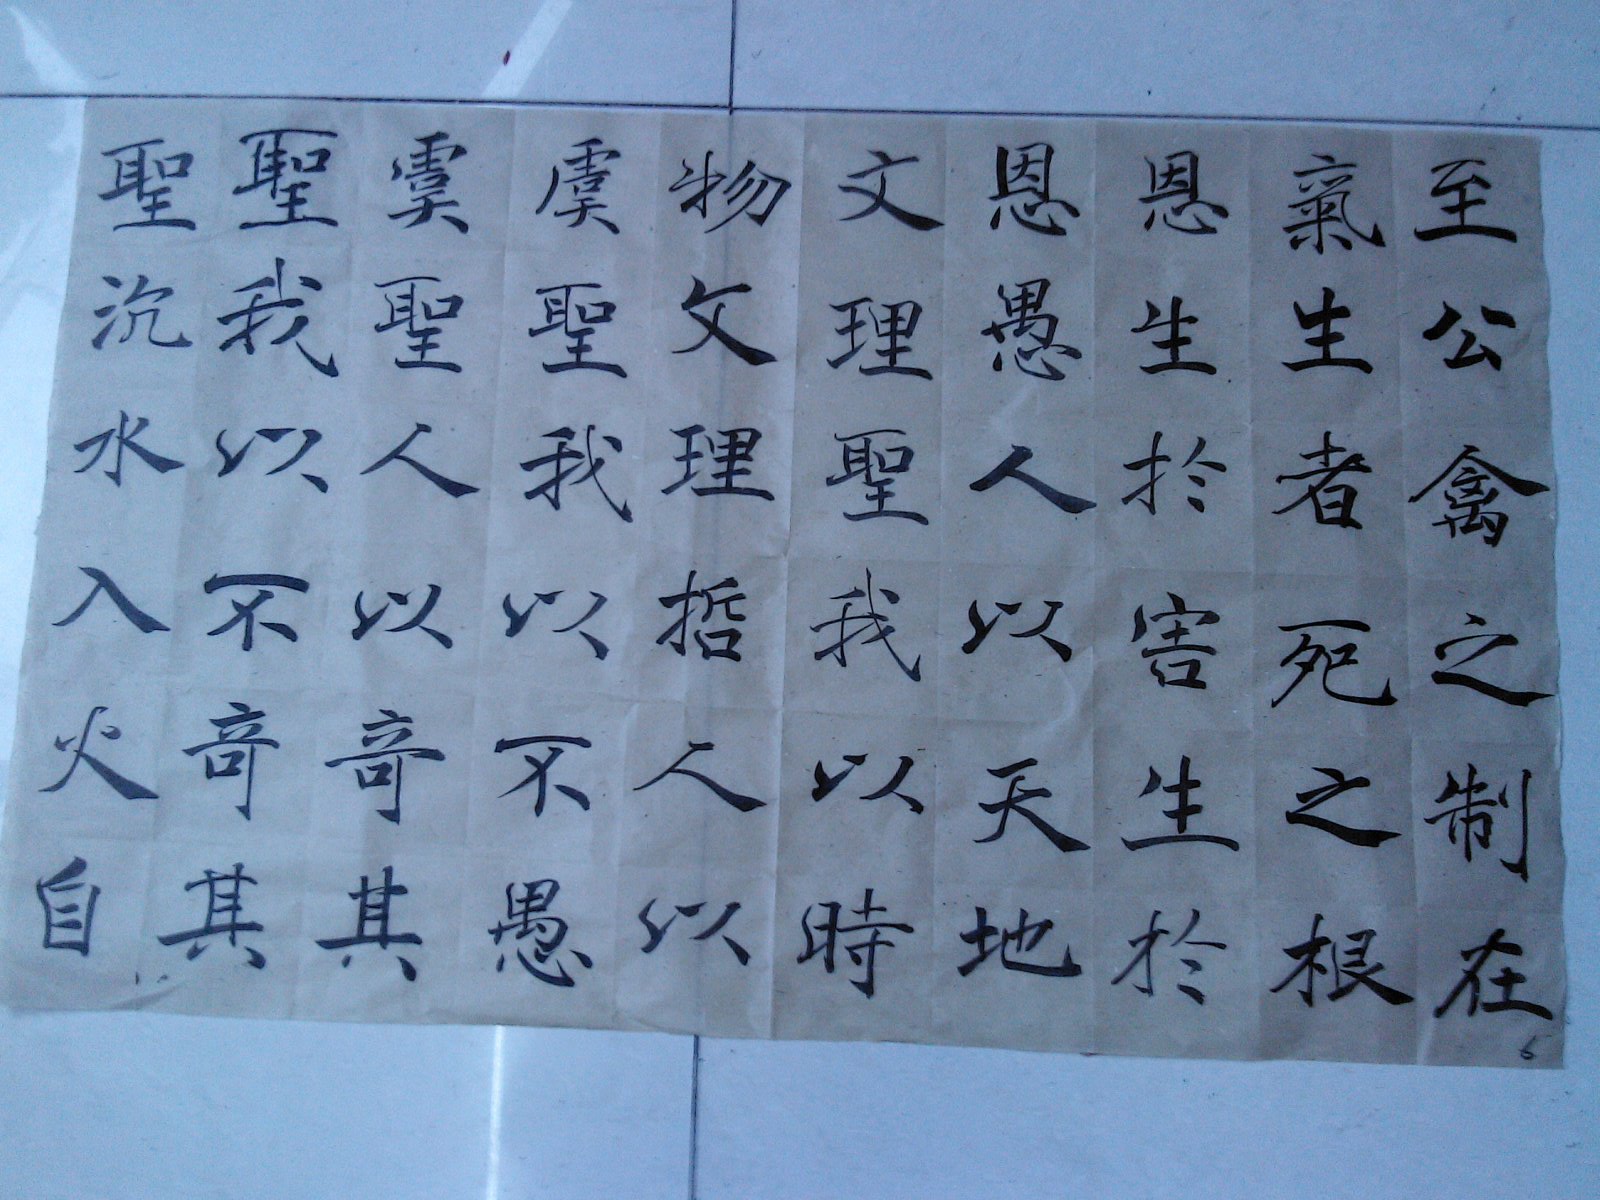 至公禽之制在
氣生者死之根
恩生於害生於
恩愚人以天地
文理聖我以時
物文理哲人以
虞聖我以不愚
虞聖人以奇其
聖我以不奇其
聖沉水入火自
6